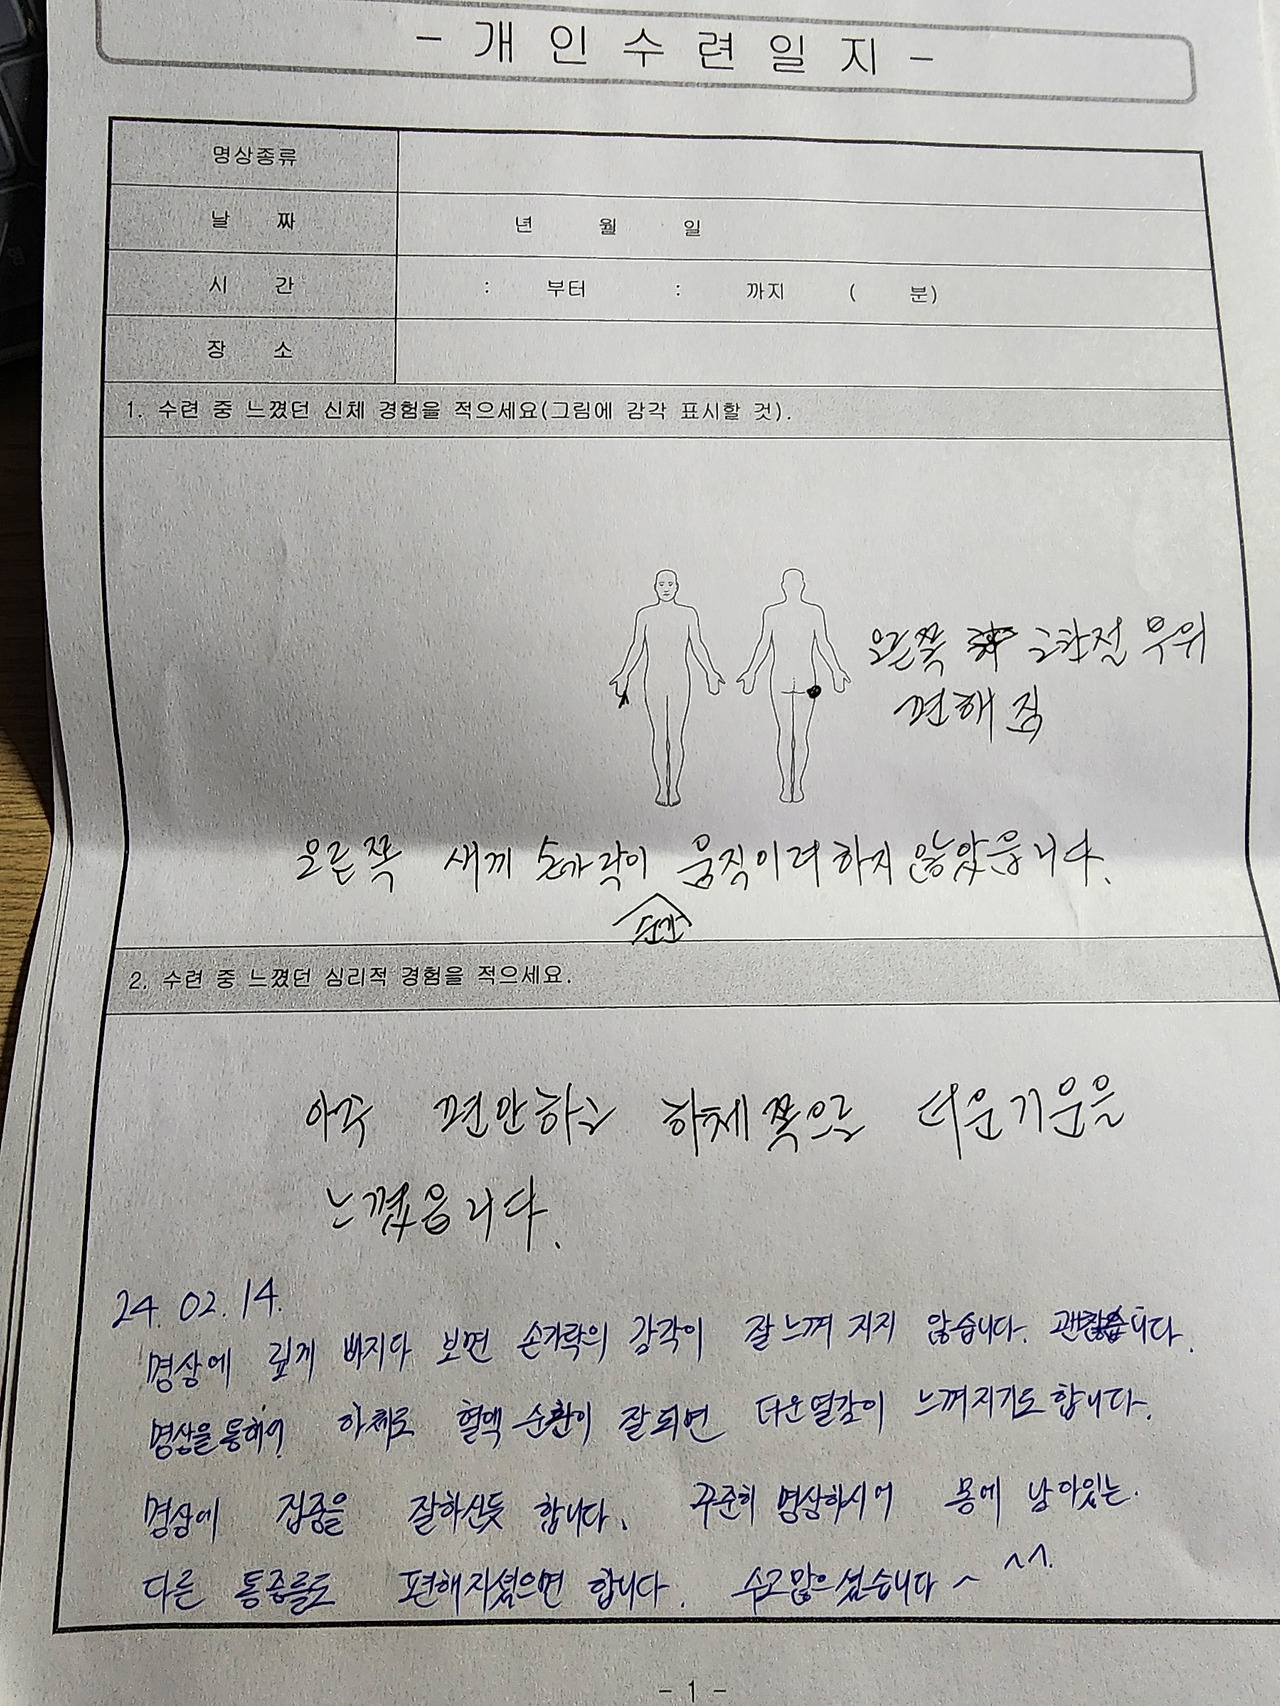 - 개 인 수 련 일 지 -
명상종류
날 짜 년 월 일
시 간 : 부터 : 까지 ( 분)
장 소
1. 수련 중 느꼈던 신체 경험을 적으세요(그림에 감각 표시할 것).
오른쪽 고관절 부위
편해 짐
오른쪽 새끼 손가락이 움직이려 하지 않았습니다.
순간
2. 수련 중 느꼈던 심리적 경험을 적으세요.
아주 편안하고 하체쪽으로 더운기운을
느꼈습니다.
24. 02. 14.
명상에 깊게 빠지다 보면 손가락의 감각이 잘 느껴 지지 않습니다. 괜찮습니다.
명상을 통하여 하체로 혈액 순환이 잘되면 더운열감이 느껴지기도 합니다.
명상에 집중을 잘하신듯 합니다. 꾸준히 명상하시어 몸에 남아있는
다른 통증들도 편해지셨으면 합니다. 수고많으셨습니다~ ^^.
- 1 -